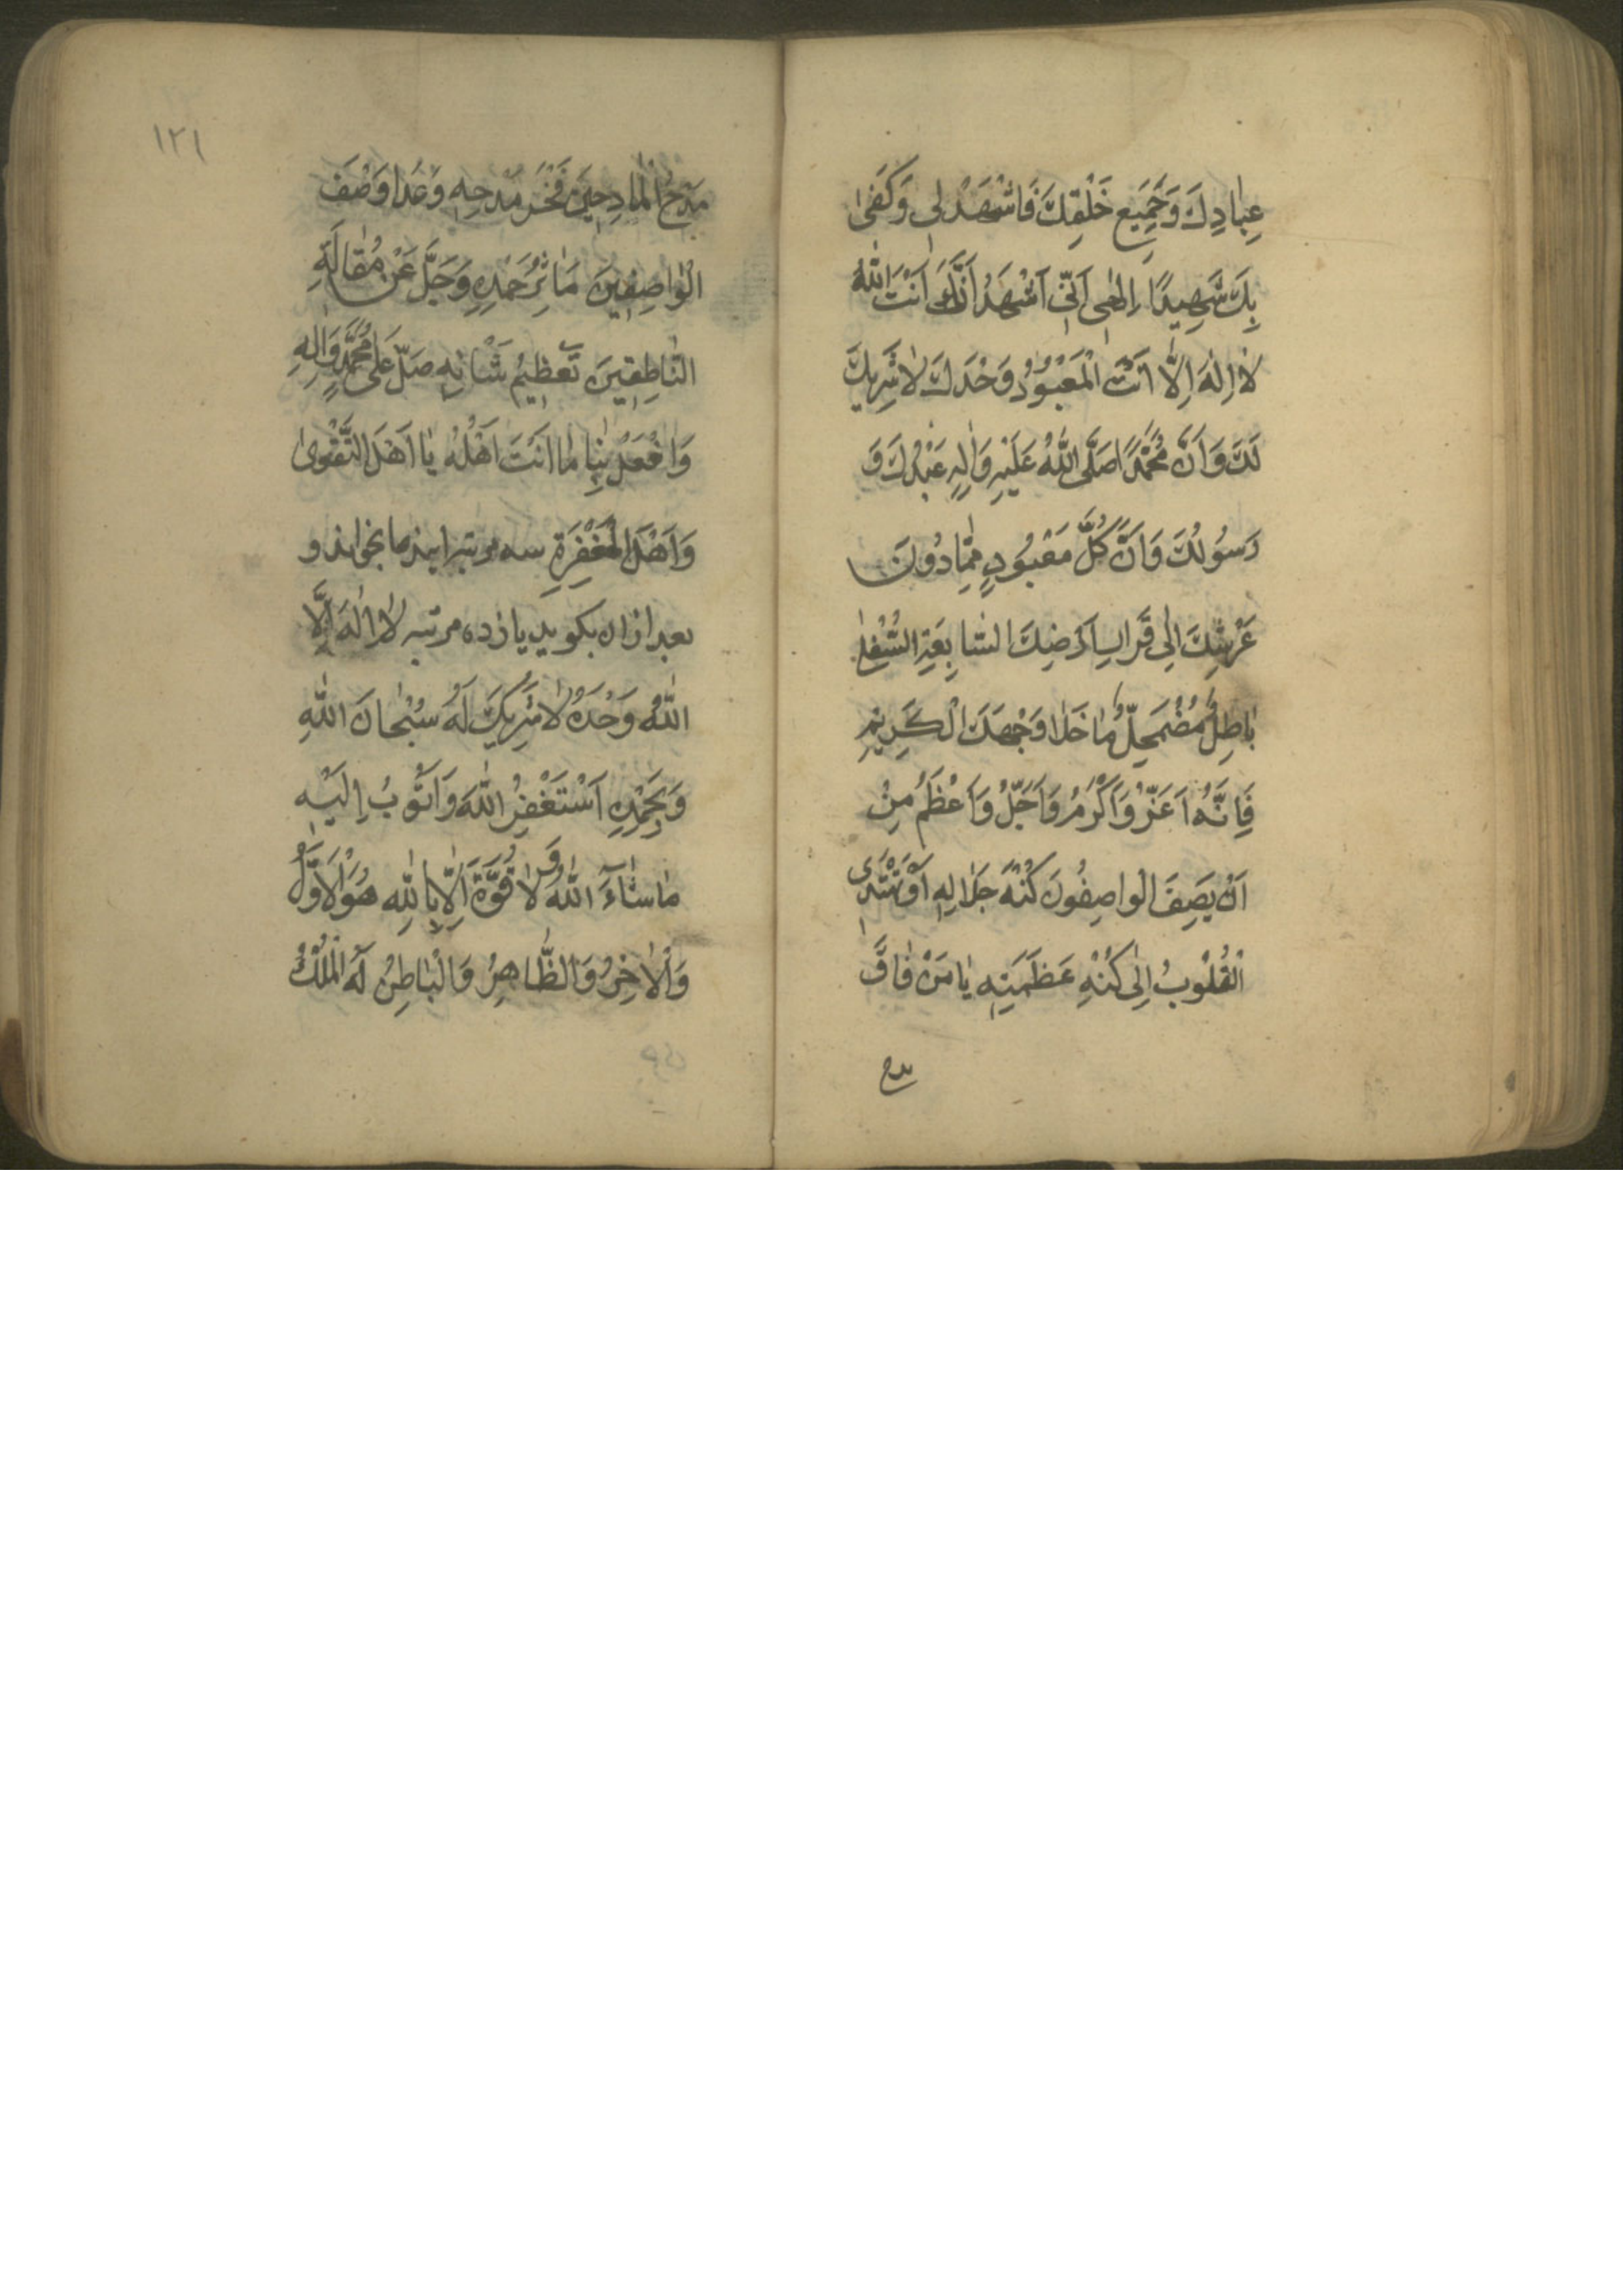 عِبٰادِكَ وَجَمِيعِ خَلْقِكَ فَاشْهَدْ لِي وَكَفىٰ
بِكَ شَهِيدًا اِلٰهِي اِنِّي اَشْهَدُ اَنَّكَ اَنْتَ اللّٰهُ
لٰا اِلٰهَ اِلَّا اَنْتَ الْمَعْبُوْدُ وَحْدَكَ لٰا شَرِيكَ
لَكَ وَاَنَّ مُحَمَّدًا صَلَّى اللّٰهُ عَلَيْهِ وَاٰلِهِ عَبْدُكَ وَ
رَسُولُكَ وَاَنَّ كُلَّ مَعْبُودٍ مِمّٰا دُونَ
عَرْشِكَ اِلىٰ قَرٰارِ اَرَضِكَ السّٰابِعَةِ السُّفْلىٰ
بٰاطِلٌ مُضْمَحِلٌّ مٰا خَلٰا وَجْهَكَ الْكَرِيْمِ
فَاِنَّهُ اَعَزُّ وَاَكْرَمُ وَاَجَلُّ وَاَعْظَمُ مِنْ
اَنْ يَصِفَ الْوٰاصِفُونَ كُنْهَ جَلٰالِهِ اَوْ تَهْتَدِيَ
الْقُلُوْبُ اِلٰى كُنْهِ عَظَمَتِهِ يٰا مَنْ فٰاقَ
مدح
١٢١
مَدْحُ الْمٰادِحِينَ فَخْرَ مَدْحِهِ وَعَدٰا وَصْفَ
الْوٰاصِفِينَ مَاٰثِرُ حَمْدِهِ وَجَلَّ عَنْ مُقٰالَةِ
النّٰاطِقِينَ تَعْظِيمُ شَأْنِهِ صَلِّ عَلىٰ مُحَمَّدٍ وَاٰلِهِ
وَافْعَلْ بِنٰا مٰا اَنْتَ اَهْلُهُ يٰا اَهْلَ التَّقْوىٰ
وَاَهْلَ الْمَغْفِرَةِ سه مرتبه اینرما بخواند و
بعد ازان بكويد يازده مرتبه لٰا اِلٰهَ اِلَّا
اللّٰهُ وَحْدَهُ لٰا شَرِيكَ لَهُ سُبْحٰانَ اللّٰهِ
وَبِحَمْدِهِ اَسْتَغْفِرُ اللّٰهَ وَاَتُوْبُ اِلَيْهِ
مٰا شٰاءَ اللّٰهُ وَ لٰا قُوَّةَ اِلّٰا بِاللّٰهِ هُوَ الْاَوَّلُ
وَالْاٰخِرُ وَالظّٰاهِرُ وَالْبٰاطِنُ لَهُ الْمُلْكُ